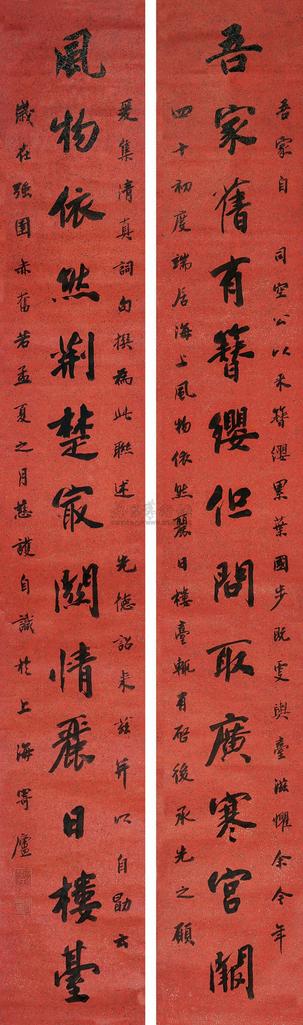 吾家自 司空公以來簪纓累葉國步既輿臺滋懼余今年
吾家舊有簪纓但問取廣寒宮闕
四十初度端居海上風物依然麗日樓臺輒有启後承先之願
爰集清真詞句撰為此聯述 先德詔來茲并以自勖云
風物依然荊楚㝡關情麗日樓臺
歲在強圉赤奮若孟夏之月慈護自識於上海寄廬